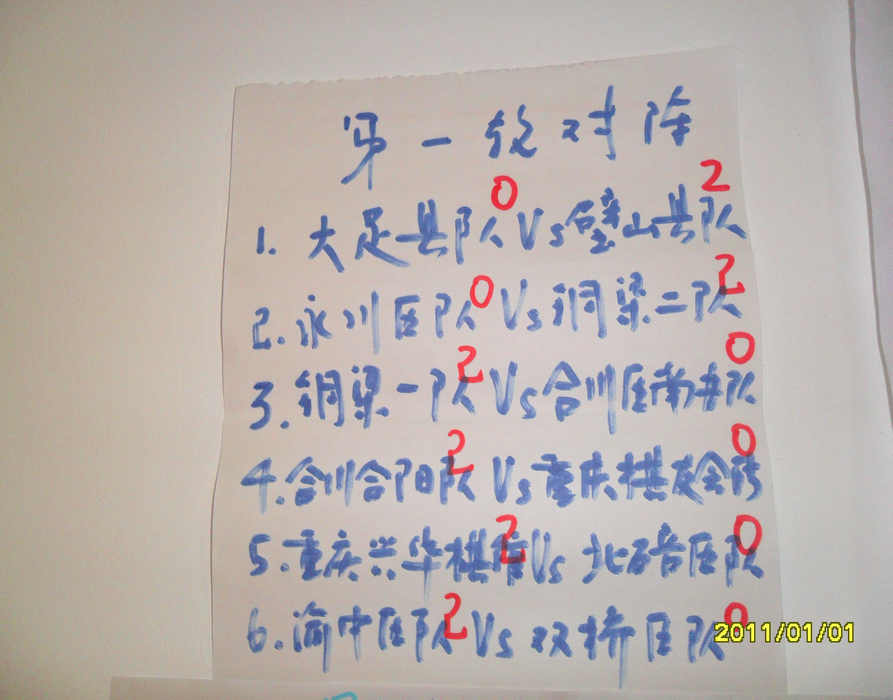 第一轮对阵
1. 大足县队 0 Vs 璧山县队 2
2. 永川区队 0 Vs 铜梁二队 2
3. 铜梁一队 2 Vs 合川区南井队 0
4. 合川合阳队 2 Vs 重庆棋友会 0
5. 重庆兴华棋 2 Vs 北碚区队 0
6. 渝中区队 2 Vs 双桥区队 0
2011/01/01